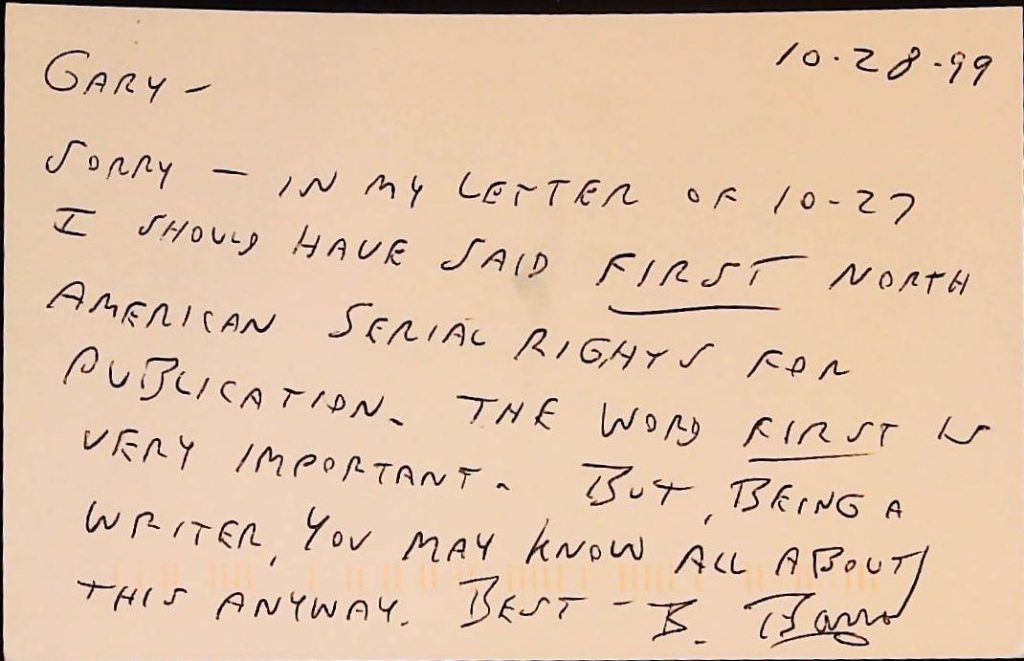 10-28-99
GARY –
SORRY — IN MY LETTER OF 10-27
I SHOULD HAVE SAID FIRST NORTH
AMERICAN SERIAL RIGHTS FOR
PUBLICATION. THE WORD FIRST IS
VERY IMPORTANT. BUT, BEING A
WRITER, YOU MAY KNOW ALL ABOUT
THIS ANYWAY. BEST – B.